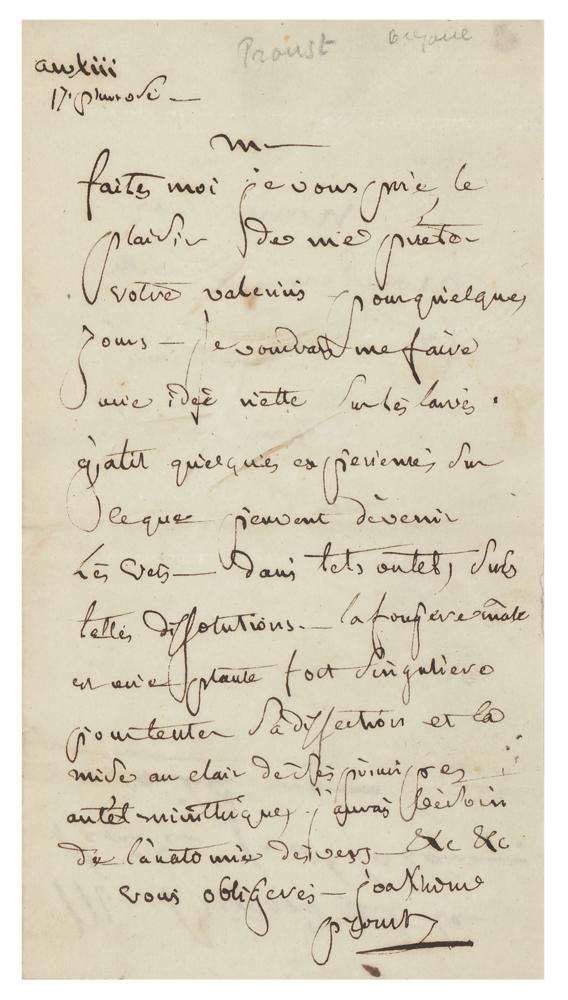 Proust
an xiii
17 pluviose —
M —
faites moi je vous prie, le
plaisir de me prèter
votre valerius pour quelques
jours — je voudrais me faire
une idée nette sur les larves.
quelques experiences sur
ce que peuvent dèvenir
Lès vers — dans tels ou tels sucs
telles dissolutions. — la fougere male
est une plante fort singuliere
pour tenter sa dissection et la
mise au clair de ses principes
antel-minthiques. j'aurais bésoin
de l'anatomie des vers — &c &c
vous obligerès —
proust